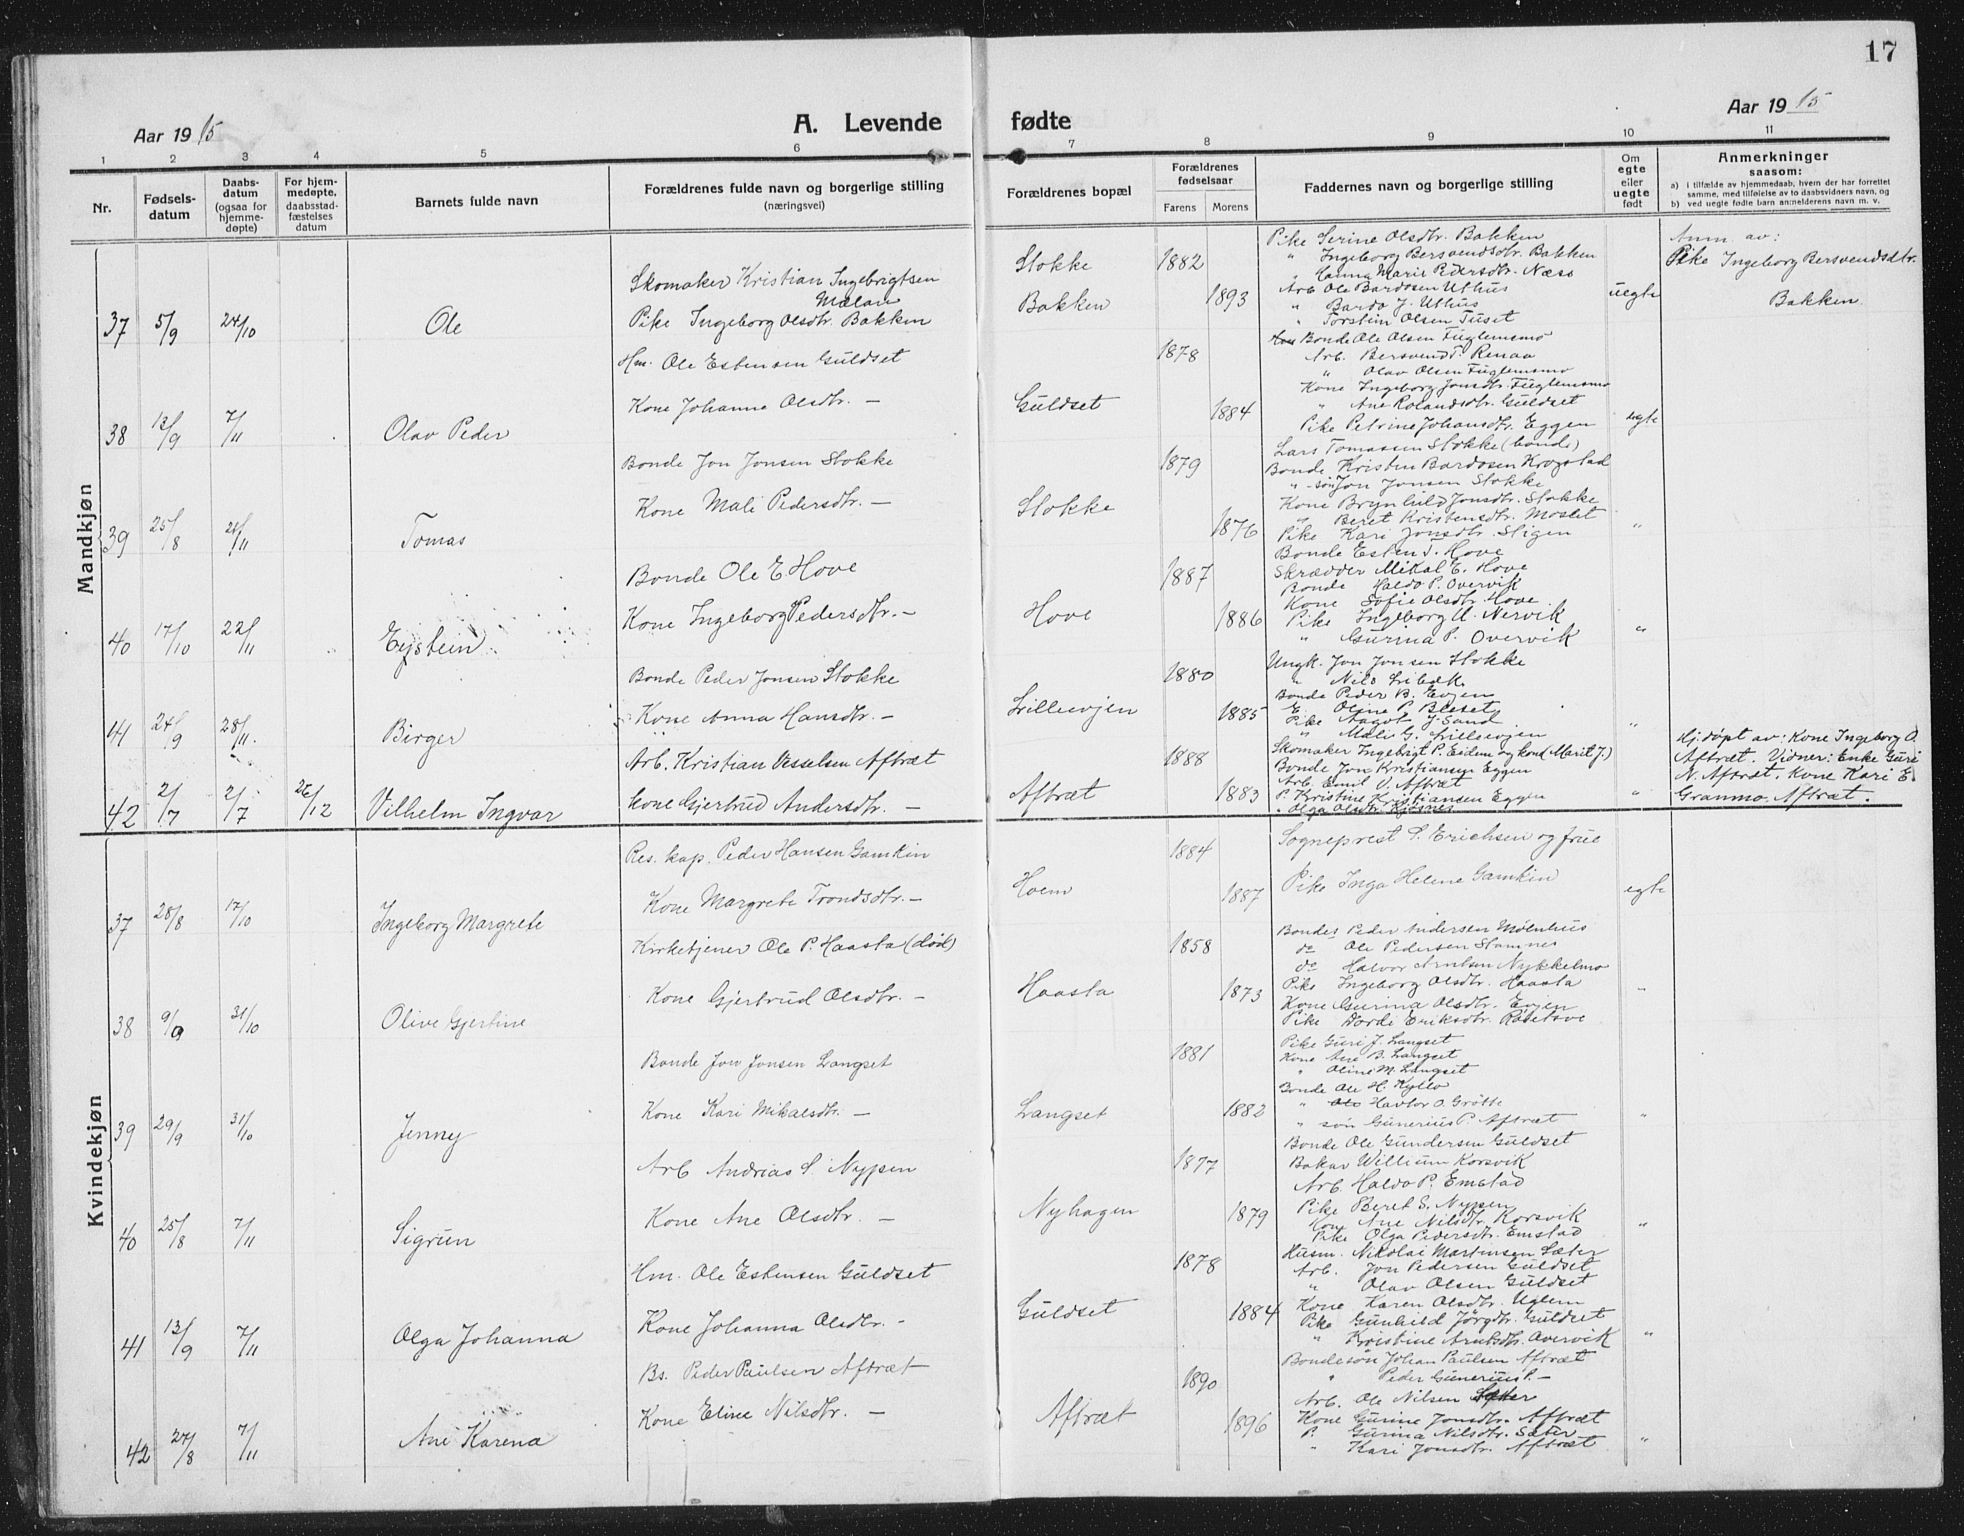 17
Aar 1915
A. Levende fødte
Aar 1915
1 2 3 4 5 6 7 8 9 10 11
Nr.
Fødsels-
datum
Daabs-
datum
(ogsaa for
hjemme-
døpte)
For hjem-
medøpte,
daabsstad-
fæstelses
datum
Barnets fulde navn
Forældrenes fulde navn og borgerlige stilling
(næringsvei)
Forældrenes bopæl
Forældrenes
fødselsaar
Farens Morens
Faddernes navn og borgerlige stilling
Om
egte
eller
uegte
født
Anmerkninger
saasom:
a) i tilfælde av hjemmedaab, hvem der har forrettet
samme, med tilføielse av to daabsvidners navn, og
b) ved uegte fødte barn anmelderens navn m. v.
Mandkjøn
37 5/9 24/10 Ole
Skomaker Kristian Ingebrigtsen
Mælan
Pike Ingeborg Olsdtr. Bakken
Stokke 1882
Bakken 1893
Pike Serine Olsdtr. Bakken
" Ingeborg Bersvendsdtr. Bakken
" Hanna Marie Pedersdtr. Næss
Arb. Ole Bardosen Uthus
" Bardo J. Uthus
" Torstein Olsen Tuset
uegte
Anm. av:
Pike Ingeborg Bersvendsdtr.
Bakken
38 13/9 7/11 Olav Peder
Hm. Ole Estensen Guldset
Kone Johanna Olsdtr. —
Guldset 1878 1884
Bonde Ole Olsen Fuglemsmo
Arb. Bersvend T. Renaa
" Olav Olsen Fuglemsmo
Kone Ingeborg Jonsdtr. Fuglemsmo
" Ane Rolandsdtr. Guldset
Pike Petrine Johansdtr. Eggen
egte
39 25/8 21/11 Tomas
Bonde Jon Jonsen Stokke
Kone Mali Pedersdtr. —
Stokke 1879 1876
Lars Tomassen Stokke (bonde)
Bonde Kristen Bardosen Krogstad
" søn Jon Jonsen Stokke
Kone Brynhild Jonsdtr. Stokke
" Beret Kristensdtr. Moslet
Pike Kari Jonsdtr. Stigen
"
40 17/10 22/11 Eystein
Bonde Ole E. Hove
Kone Ingeborg Pedersdtr. —
Hove 1887 1886
Bonde Esten T. Hove
Skrædder Mikal E. Hove
Bonde Haldo P. Overvik
Kone Sofie Olsdtr. Hove
Pike Ingeborg U. Nervik
" Gurina P. Overvik
"
41 24/9 28/11 Birger
Bonde Peder Jonsen Stokke
Kone Anna Hansdtr. —
Lillevjen 1880 1885
Ungk. Jon Jonsen Stokke
" Nils
Bonde Peder B. Evjen
Oline P. Bleset
Pike Aagot J. Sand
" Mali G. Lillevjen
"
42 2/7 2/7 26/12 Vilhelm Ingvar
Arb. Kristian Vesselsen Aftræt
Kone Gjertrud Andersdtr. —
Aftræt 1888 1883
Skomaker Ingebrigt P. Eidem og kone (Marit J.)
Bonde Jon Kristiansen Eggen
Arb. Emil V. Aftræt
P. Kristine Kristiansen Eggen
" Olga Olsdtr. Kjøsnes
"
Hj. døpt av: Kone Ingeborg O.
Aftræt. Vidner: Enke Guri
N. Aftræt, Kone Kari E
Granmo, Aftræt.
Kvindekjøn
37 28/8 17/10 Ingeborg Margrete
Res. kap. Peder Hansen Gamkin
Kone Margrete Trondsdtr. —
Hoem 1884 1887
Sogneprest S. Erichsen og frue
Pike Inga Helene Gamkin
egte
38 9/9 31/10 Olive Gjertine
Kirketjener Ole P. Haasta (død)
Kone Gjertrud Olsdtr. —
Haasta 1858 1873
Bondes Peder Andersen Mølnhus
do Ole Pedersen Stamnes
do Halvor Arntsen Nykkelmo
Pike Ingeborg Olsdtr. Haasta
Kone Gurina Olsdtr. Evjen
Pike Dordi Eriksdtr.
"
39 29/9 31/10 Jenny
Bonde Jon Jonsen Langset
Kone Kari Mikalsdtr. —
Langset 1881 1882
Pike Guri J. Langset
Kone Ane B. Langset
" Oline M. Langset
Bonde Ole H. Kyllo
" Ole Havtor O. Grøtte
" søn Gunerius P. Aftræt
"
40 25/8 7/11 Sigrun
Arb Andrias S. Nypen
Kone Ane Olsdtr. —
Nyhagen 1877 1879
Bonde Ole Gundersen Guldset
Baker Willium Korsvik
Arb. Haldo P. Emstad
Pike Beret S. Nypen
Kone Ane Nilsdtr. Korsvik
Pike Olga Pedersdtr. Emstad
"
41 13/9 7/11 Olga Johanna
Hm. Ole Estensen Guldset
Kone Johanna Olsdtr. —
Guldset 1878 1884
Husm. Nikolai Martinsen Sæter
Arb. Jon Pedersen Guldset
" Olav Olsen Guldset
Kone Karen Olsdtr. Uglem
Pike Gunhild Jørgdtr. Guldset
" Kristine Arntsdtr. Overvik
"
42 27/8 7/11 Ane Karena
Bs. Peder Paulsen Aftræt
Kone Eline Nilsdtr. —
Aftræt 1890 1896
Bondesøn Johan Paulsen Aftræt
" Peder Gunerius P. —
Arb. Ole Nilsen Sæter
Kone Gurine Jonsdtr. Aftræt
P. Gurina Nilsdtr. Sæter
" Kari Jonsdtr. Aftræt
"